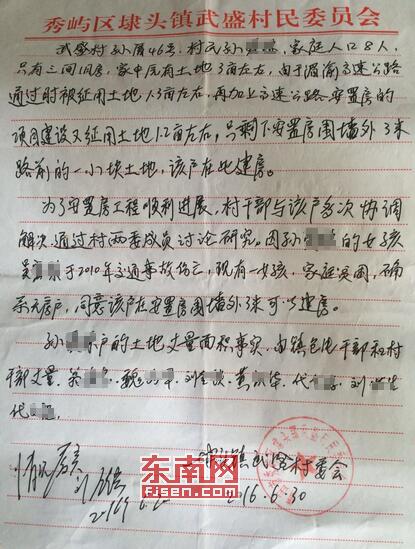 秀屿区埭头镇武盛村民委员会
武盛村孙厝46号，村民孙，家庭人口8人，
只有三间旧房，家中原有土地3亩左右，由于湄渝高速公路
通过时被征用土地1.3亩左右，再加上高速公路安置房的
项目建设又征用土地1.2亩左右，只剩下安置房围墙外3米
路前的一小块土地，该户在此建房。
为了安置房工程顺利进展，村干部与该户多次协调
解决通过村两委成员讨论研究。因孙的女孩
于2010年交通事故伤亡，现有一女孩，家庭困，确
系无房户，同意该户在安置房围墙外3米可以建房。
孙户的土地丈量面积事实，由镇包片干部和村
干部丈量，
镇武盛村委会
2016.6.30
东南网
FJSEN.COM